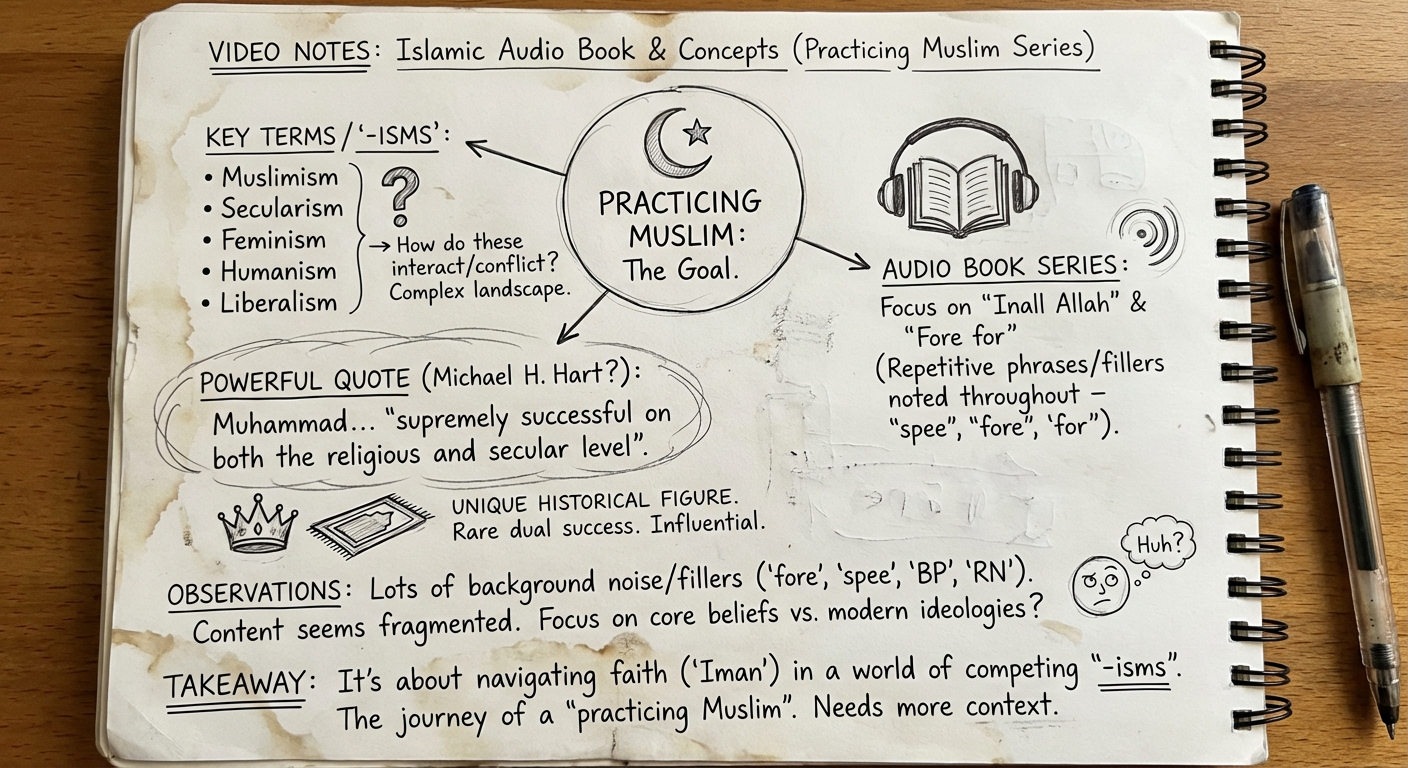 VIDEO NOTES: Islamic Audio Book & Concepts (Practicing Muslim Series)
KEY TERMS / '-ISMS':
• Muslimism
• Secularism
• Feminism
• Humanism
• Liberalism
?
→ How do these
interact/conflict?
Complex landscape.
PRACTICING
MUSLIM:
The Goal.
AUDIO BOOK SERIES:
Focus on "Inall Allah" &
"Fore for"
(Repetitive phrases/fillers
noted throughout –
"spee", "fore", 'for").
POWERFUL QUOTE (Michael H. Hart?):
Muhammad... "supremely successful on
both the religious and secular level".
UNIQUE HISTORICAL FIGURE.
Rare dual success. Influential.
OBSERVATIONS: Lots of background noise/fillers ('fore', 'spee', 'BP', 'RN').
Content seems fragmented. Focus on core beliefs vs. modern ideologies?
Huh?
TAKEAWAY: It's about navigating faith ('Iman') in a world of competing "-isms".
The journey of a "practicing Muslim". Needs more context.